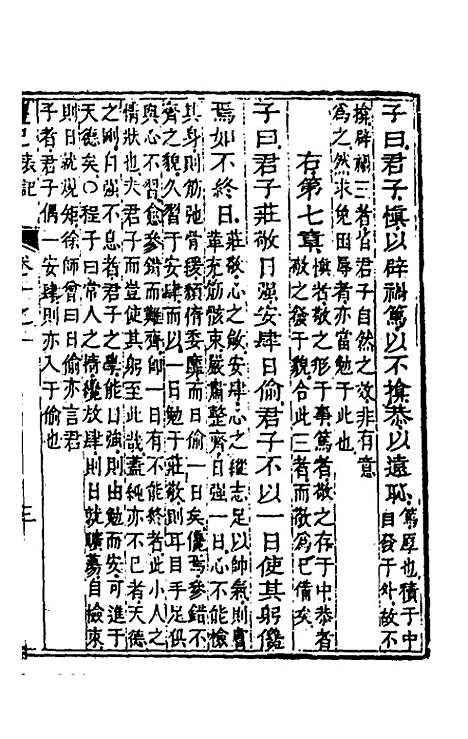 子曰君子慎以辟禍篤以不揜恭以遠恥篤厚也積于中
自發于外故不
揜辟禍三者皆君子自然之效非有意
為之然求免困辱者亦當勉于此也
右第七章慎者敬之形于事篤者敬之存于中恭者
敬之發于貌合此三者而敬為已備矣
子曰君子莊敬日强安肆日偷君子不以一日使其躬儳
焉如不終日莊敬心之斂安肆心之縱志足以帥氣則膚
革充筋骸束嚴肅整齊日强一日心不能檢
其身則筋弛骨緩頹惰委靡而日偷一日矣儳焉參錯不
齊之貌久習于安肆而以一日勉于莊敬則耳目手足俱
與心不習愈參錯而難齊卽一日有不能終者此小人之
情狀也夫君子而豈使其躬至此哉蓋純亦不已者天德
之剛自强不息者君子之學能日强則由勉而安可進于
天德矣○程子曰常人之情纔放肆則日就曠蕩自檢束
則日就規矩徐師曾曰日偷亦言君
子者君子偶一安肆則亦入于偷也
禮記疑記
卷十之
三